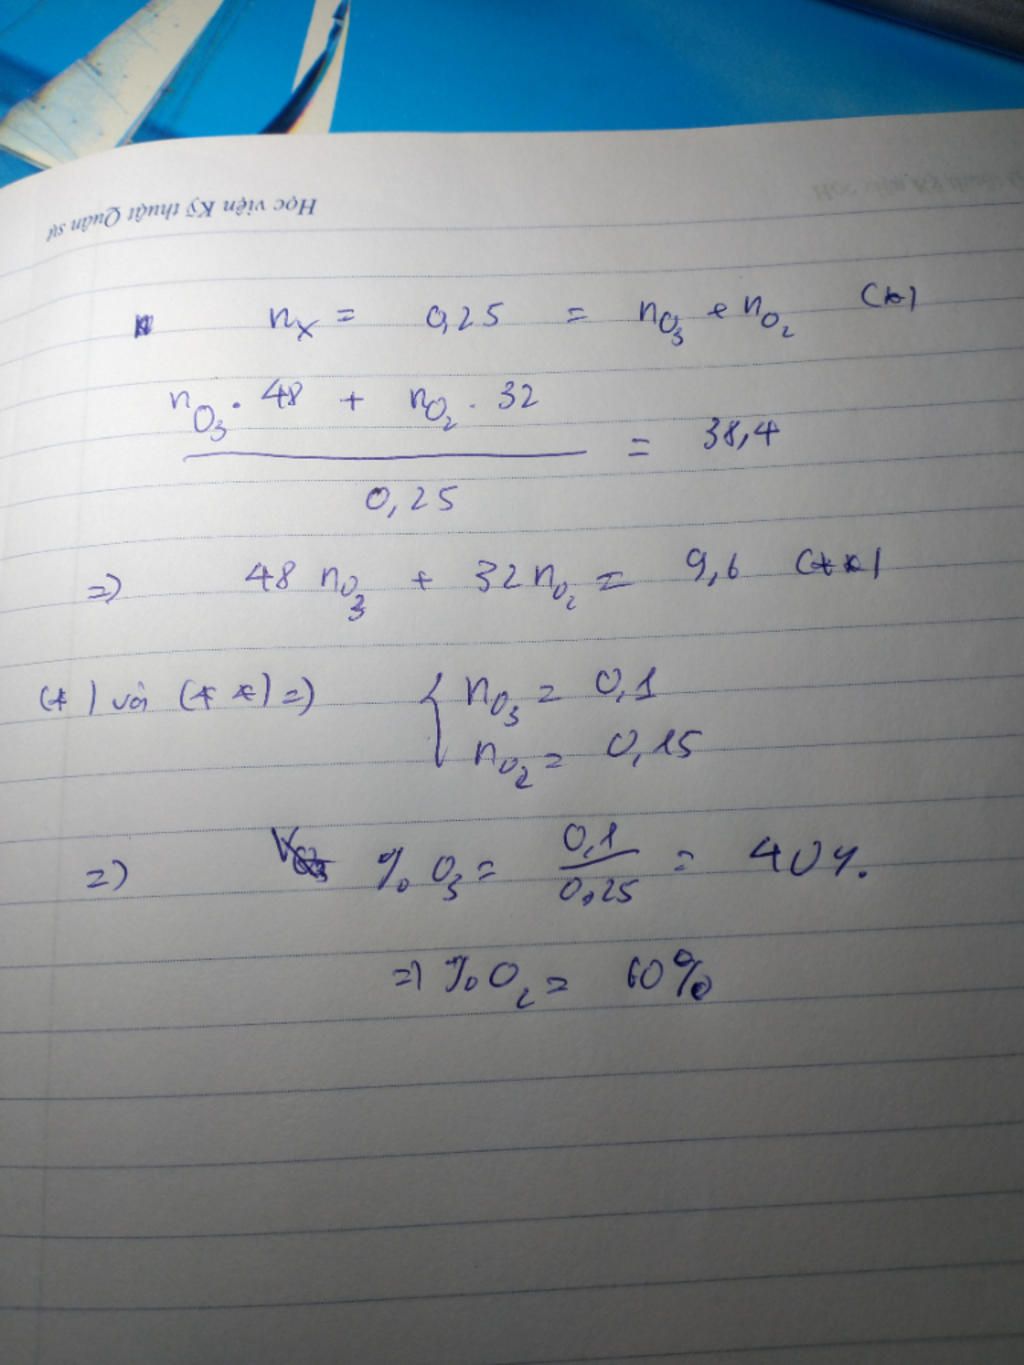 Học viện Kỹ thuật Quân sự
n_X = 0,25 = n_O3 + n_O2 (*)
n_O3 . 48 + n_O2 . 32
= 38,4
0,25
=> 48 n_O3 + 32 n_O2 = 9,6 (**)
(*) và (**) => { n_O3 = 0,1
n_O2 = 0,15
=> % O3 = 0,1 / 0,25 = 40%.
=> % O2 = 60%